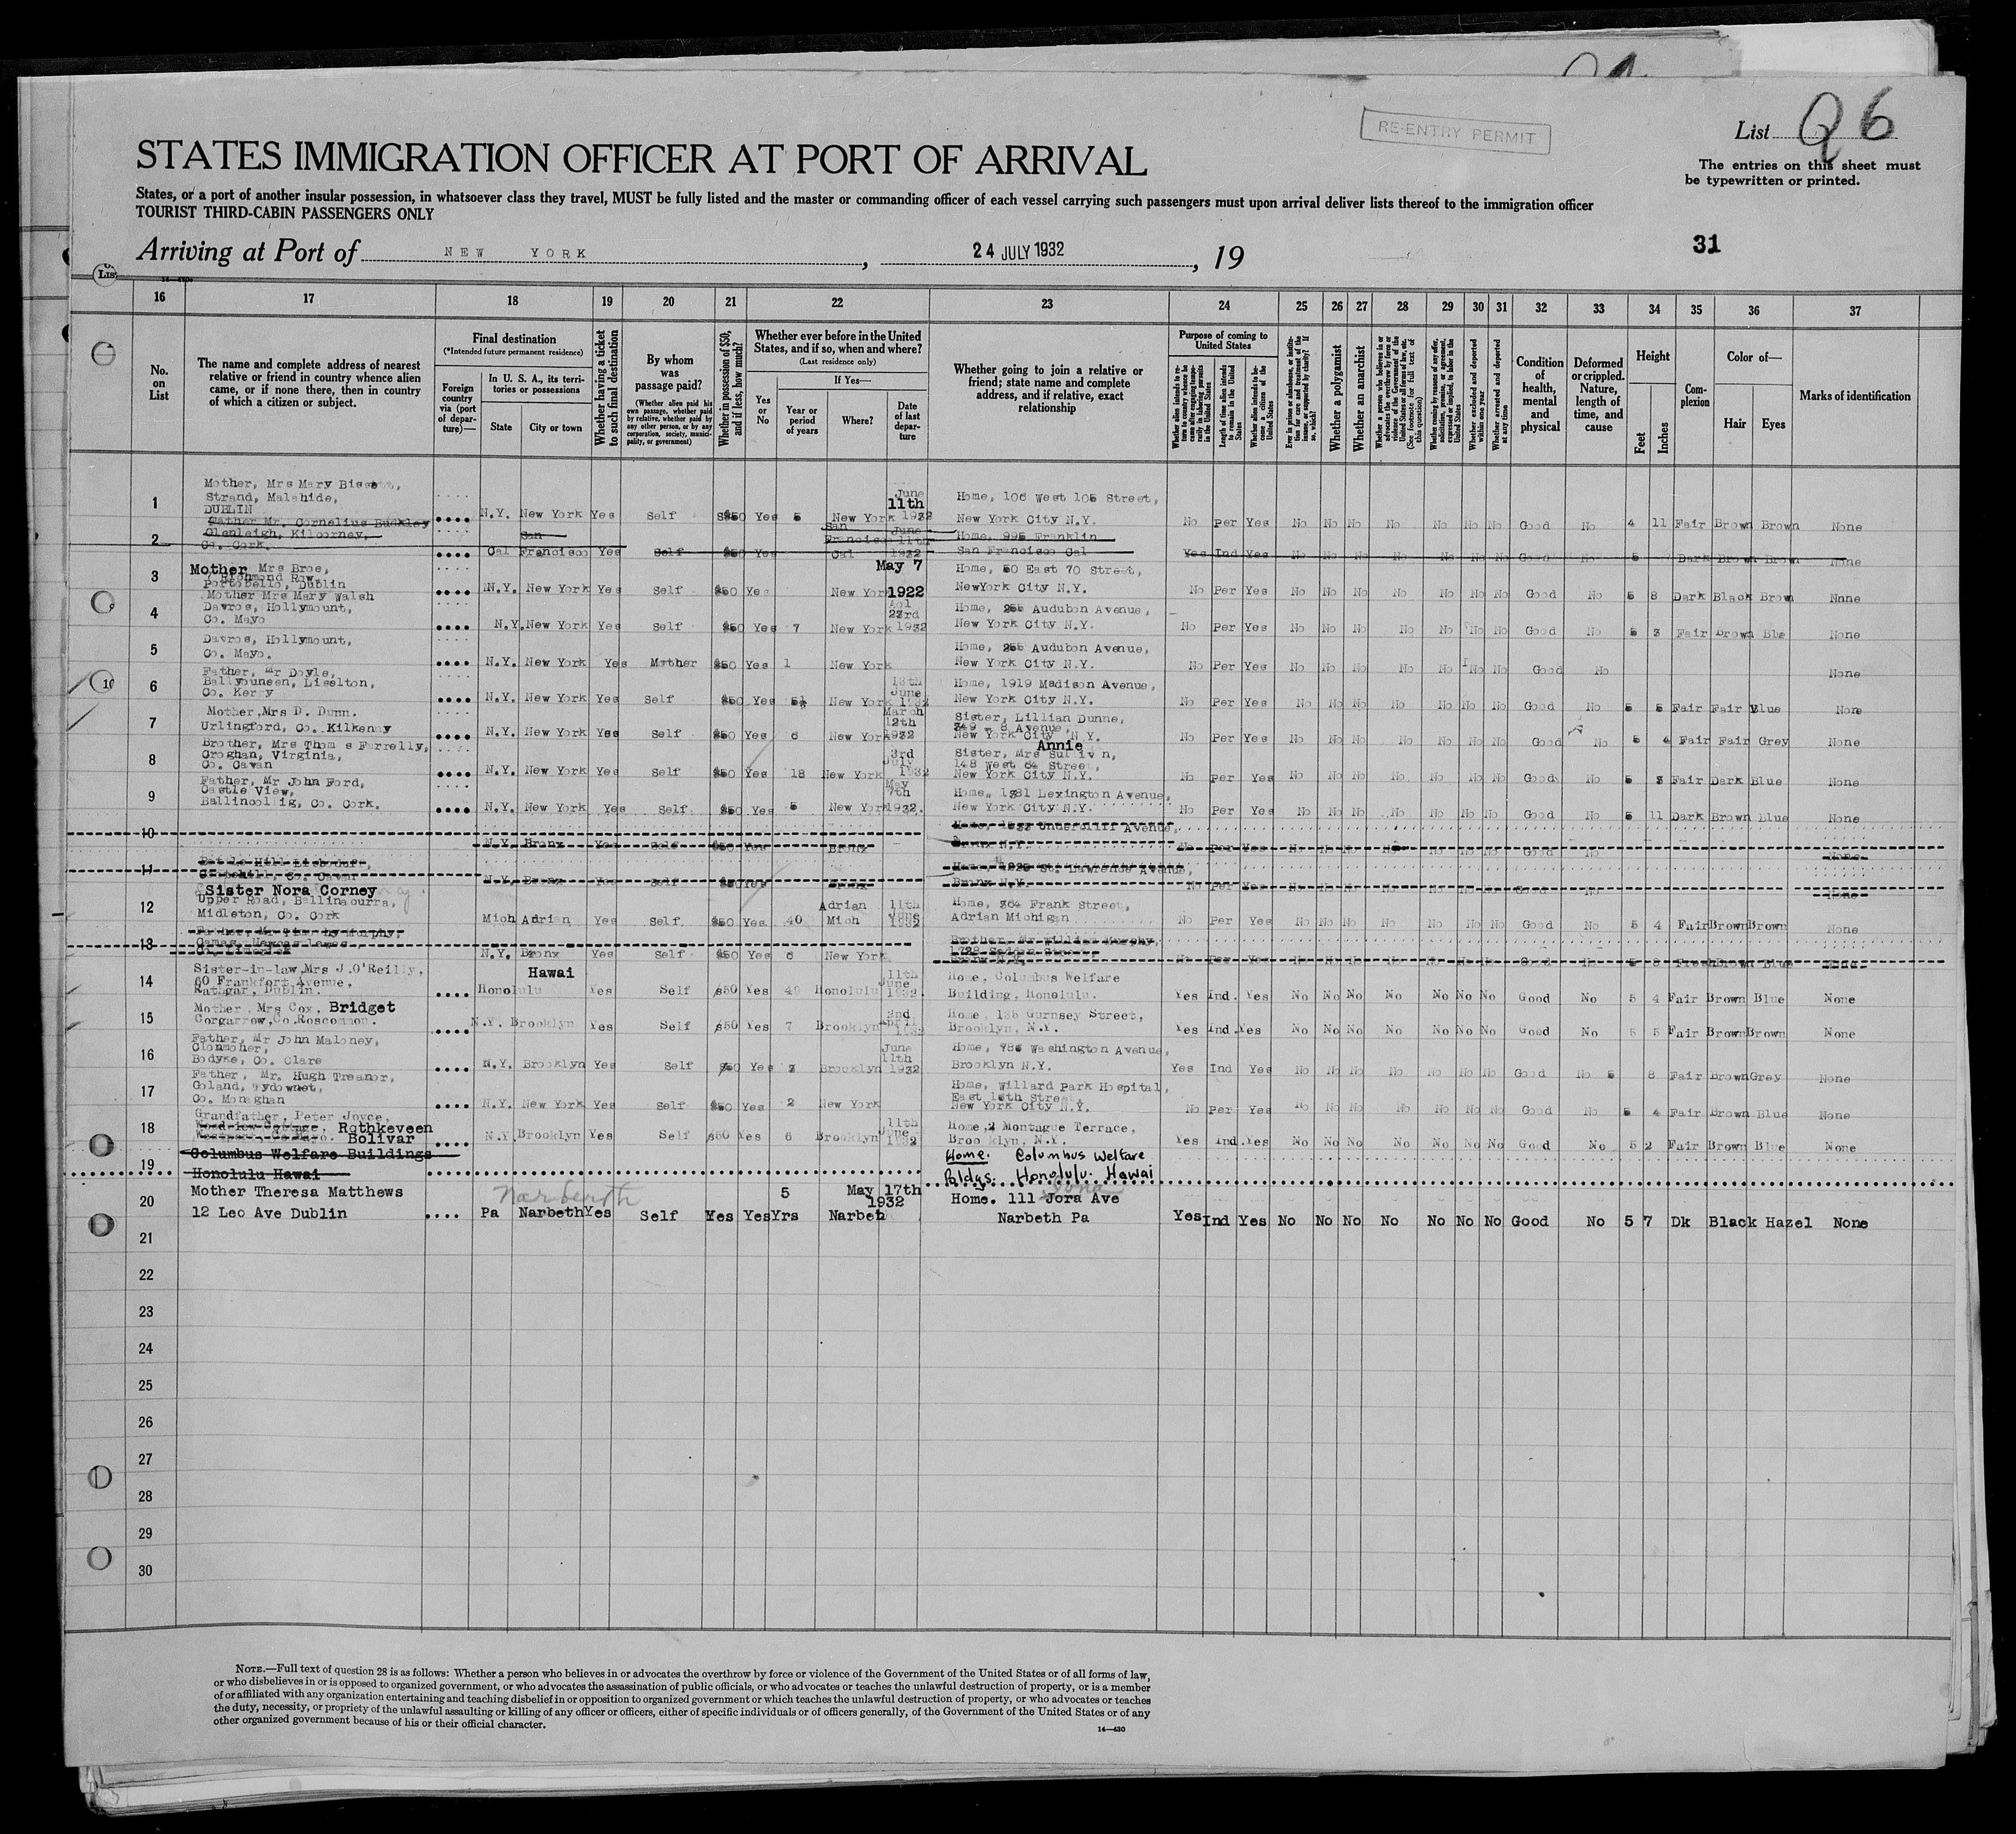 RE-ENTRY PERMIT
List Q 6
STATES IMMIGRATION OFFICER AT PORT OF ARRIVAL
The entries on this sheet must
be typewritten or printed.
States, or a port of another insular possession, in whatsoever class they travel, MUST be fully listed and the master or commanding officer of each vessel carrying such passengers must upon arrival deliver lists thereof to the immigration officer
TOURIST THIRD-CABIN PASSENGERS ONLY
Arriving at Port of NEW YORK, 24 JULY 1932, 19
31
16 17 18 19 20 21 22 23 24 25 26 27 28 29 30 31 32 33 34 35 36 37
No. on List
The name and complete address of nearest
relative or friend in country whence alien
came, or if none there, then in country
of which a citizen or subject.
Final destination
(*Intended future permanent residence)
Foreign country via (port of depar-ture)—
In U. S. A., its terri-
tories or possessions
State
City or town
Whether having a ticket to such final destination
By whom was passage paid?
(Whether alien paid his own passage, whether paid by relative, whether paid by any other person, or by any corporation, society, munici-pality, or government)
Whether in possession of $50, and if less, how much?
Whether ever before in the United
States, and if so, when and where?
(Last residence only)
Yes or No
If Yes—
Year or period of years
Where?
Date of last depar-ture
Whether going to join a relative or
friend; state name and complete
address, and if relative, exact
relationship
Purpose of coming to
United States
Whether alien intends to re-turn to country whence he came after engaging tempo-rarily in laboring pursuits in the United States
Length of time alien intends to remain in the United States
Whether alien intends to be-come a citizen of the United States
Ever in prison or almshouse, or institu-tion for care and treatment of the insane, or supported by charity? If so, which?
Whether a polygamist
Whether an anarchist
Whether a person who believes in or advocates the overthrow by force or violence of the Government of the United States or all forms of law, etc. (See footnote for full text of this question)
Whether coming by reason of any offer, solicitation, promise, or agreement, expressed or implied, to labor in the United States
Whether excluded and deported within one year
Whether arrested and deported at any time
Condition of health, mental and physical
Deformed or crippled. Nature, length of time, and cause
Height
Feet
Inches
Com-plexion
Color of—
Hair
Eyes
Marks of identification
1 Mother, Mrs Mary
Strand, Malahide,
DUBLIN
N.Y. New York Yes Self $50 Yes 5 New York June 11th 1932 Home, 106 West 105 Street,
New York City N.Y. No Per Yes No No No No No No No Good No 4 11 Fair Brown Brown None
2 Father Mr. Cornelius Buckley
Glenleigh, Kilcorney,
Co. Cork.
Cal San Francisco Yes Self $50 Yes San Francisco Cal June 11th 1932 Home, 995 Franklin
San Francisco Cal Yes Ind Yes No No No No No No No Good No 5 7 Dark Brown Brown None
3 Mother Mrs Broe,
Richmond Row,
Portobello, Dublin
N.Y. New York Yes Self $50 Yes New York May 7 1922 Home, 50 East 70 Street,
NewYork City N.Y. No Per Yes No No No No No No No Good No 5 8 Dark Black Brown None
4 Mother Mrs Mary Walsh
Davros, Hollymount,
Co. Mayo
N.Y. New York Yes Self $50 Yes 7 New York 23rd 1932 Home, 255 Audubon Avenue,
New York City N.Y. No Per Yes No No No No No No No Good No 5 3 Fair Brown Blue None
5 Davros, Hollymount,
Co. Mayo.
N.Y. New York Yes Mother $50 Yes 1 New York Home, 255 Audubon Avenue,
New York City N.Y. No Per Yes No No No No No No No Good No None
6 Father, Mr Doyle,
Ballybuneen, Liselton,
Co. Kerry
N.Y. New York Yes Self $50 Yes 5½ New York June 1932 Home, 1919 Madison Avenue,
New York City N.Y. No Per Yes No No No No No No No Good No 5 5 Fair Fair Blue None
7 Mother, Mrs D. Dunn.
Urlingford, Co. Kilkenny
N.Y. New York Yes Self $50 Yes 6 New York March 12th 1932 Sister, Lillian Dunne,
349 - 8 Avenue,
New York City N.Y. No Per Yes No No No No No No No Good No 5 4 Fair Fair Grey None
8 Brother, Mrs Thomas Farrelly,
Croghan, Virginia,
Co. Cavan
N.Y. New York Yes Self $50 Yes 18 New York 3rd July 1932 Sister, Mrs Annie Sullivan,
148 West 64 Street,
New York City N.Y. No Per Yes No No No No No No No Good No 5 3 Fair Dark Blue None
9 Father, Mr John Ford,
Castle View,
Ballincollig, Co. Cork.
N.Y. New York Yes Self $50 Yes 5 New York May 7th 1932. Home, 1381 Lexington Avenue,
New York City N.Y. No Per Yes No No No No No No No Good No 5 11 Dark Brown Blue None
10 N.Y. Bronx Yes Self $50 Yes Bronx Undercliff Avenue,
Bronx N.Y. No Per Yes No No No No No No No Good No None
11 Co. Cavan
N.Y. Bronx Yes Self $50 Yes Bronx Home, St. Lawrence Avenue,
Bronx N.Y. No Per Yes No No No No No No No Good No None
12 Sister Nora Corney
Upper Road, Ballinacurra,
Midleton, Co. Cork
Mich Adrian Yes Self $50 Yes 40 Adrian Mich 11th June 1932 Home, 364 Frank Street,
Adrian Michigan No Per Yes No No No No No No No Good No 5 4 Fair Brown Brown None
13 Father, Mr Murphy,
Co. Limerick
N.Y. Bronx Yes Self $50 Yes 6 New York Brother, Mr William Murphy,
Bronx N.Y. No Per Yes No No No No No No No Good No 5 8 Fresh Brown Blue None
14 Sister-in-law, Mrs J. O'Reilly,
60 Frankfort Avenue,
Rathgar, Dublin.
Hawai
Honolulu Yes Self $50 Yes 49 Honolulu 11th June 1932. Home, Columbus Welfare
Building, Honolulu. Yes Ind. Yes No No No No No No No Good No 5 4 Fair Brown Blue None
15 Mother, Mrs Cox, Bridget
Corgarrow, Co. Roscommon.
N.Y. Brooklyn Yes Self $50 Yes 7 Brooklyn 2nd Apr 1932 Home, 135 Gurnsey Street,
Brooklyn, N.Y. Yes Ind. Yes No No No No No No No Good No 5 5 Fair Brown Brown None
16 Father, Mr John Maloney,
Clonmoher,
Bodyke, Co. Clare
N.Y. Brooklyn Yes Self $50 Yes 3 Brooklyn June 11th 1932 Home, 786 Washington Avenue,
Brooklyn N.Y. Yes Ind Yes No No No No No No No Good No 5 8 Fair Brown Grey None
17 Father, Mr. Hugh Treanor,
Goland, Tydownet,
Co. Monaghan
N.Y. New York Yes Self $50 Yes 2 New York Home, Willard Park Hospital,
East 16th Street,
New York City N.Y. No Per Yes No No No No No No No Good No 5 4 Fair Brown Blue None
18 Grandfather, Peter Joyce,
Woodview Cottage, Rothkeveen
Westport, Co. Mayo. Bolivar
N.Y. Brooklyn Yes Self $50 Yes 6 Brooklyn 11th June 1932 Home, 2 Montague Terrace,
Brooklyn, N.Y. Yes Ind. Yes No No No No No No No Good No 5 2 Fair Brown Blue None
19 Columbus Welfare Buildings
Honolulu Hawai
Home. Columbus Welfare
Bldgs. Honolulu. Hawai
20 Mother Theresa Matthews
12 Leo Ave Dublin
Narberth
Pa Narbeth Yes Self Yes Yes 5 Yrs Narbeth May 17th 1932 Home. 111 Jora Ave
Narbeth Pa Yes Ind Yes No No No No No No No Good No 5 7 Dk Black Hazel None
21
22
23
24
25
26
27
28
29
30
NOTE.—Full text of question 28 is as follows: Whether a person who believes in or advocates the overthrow by force or violence of the Government of the United States or of all forms of law,
or who disbelieves in or is opposed to organized government, or who advocates the assassination of public officials, or who advocates or teaches the unlawful destruction of property, or is a member
of or affiliated with any organization entertaining and teaching disbelief in or opposition to organized government or which teaches the unlawful destruction of property, or who advocates or teaches
the duty, necessity, or propriety of the unlawful assaulting or killing of any officer or officers, either of specific individuals or of officers generally, of the Government of the United States or of any
other organized government because of his or their official character.
14—430